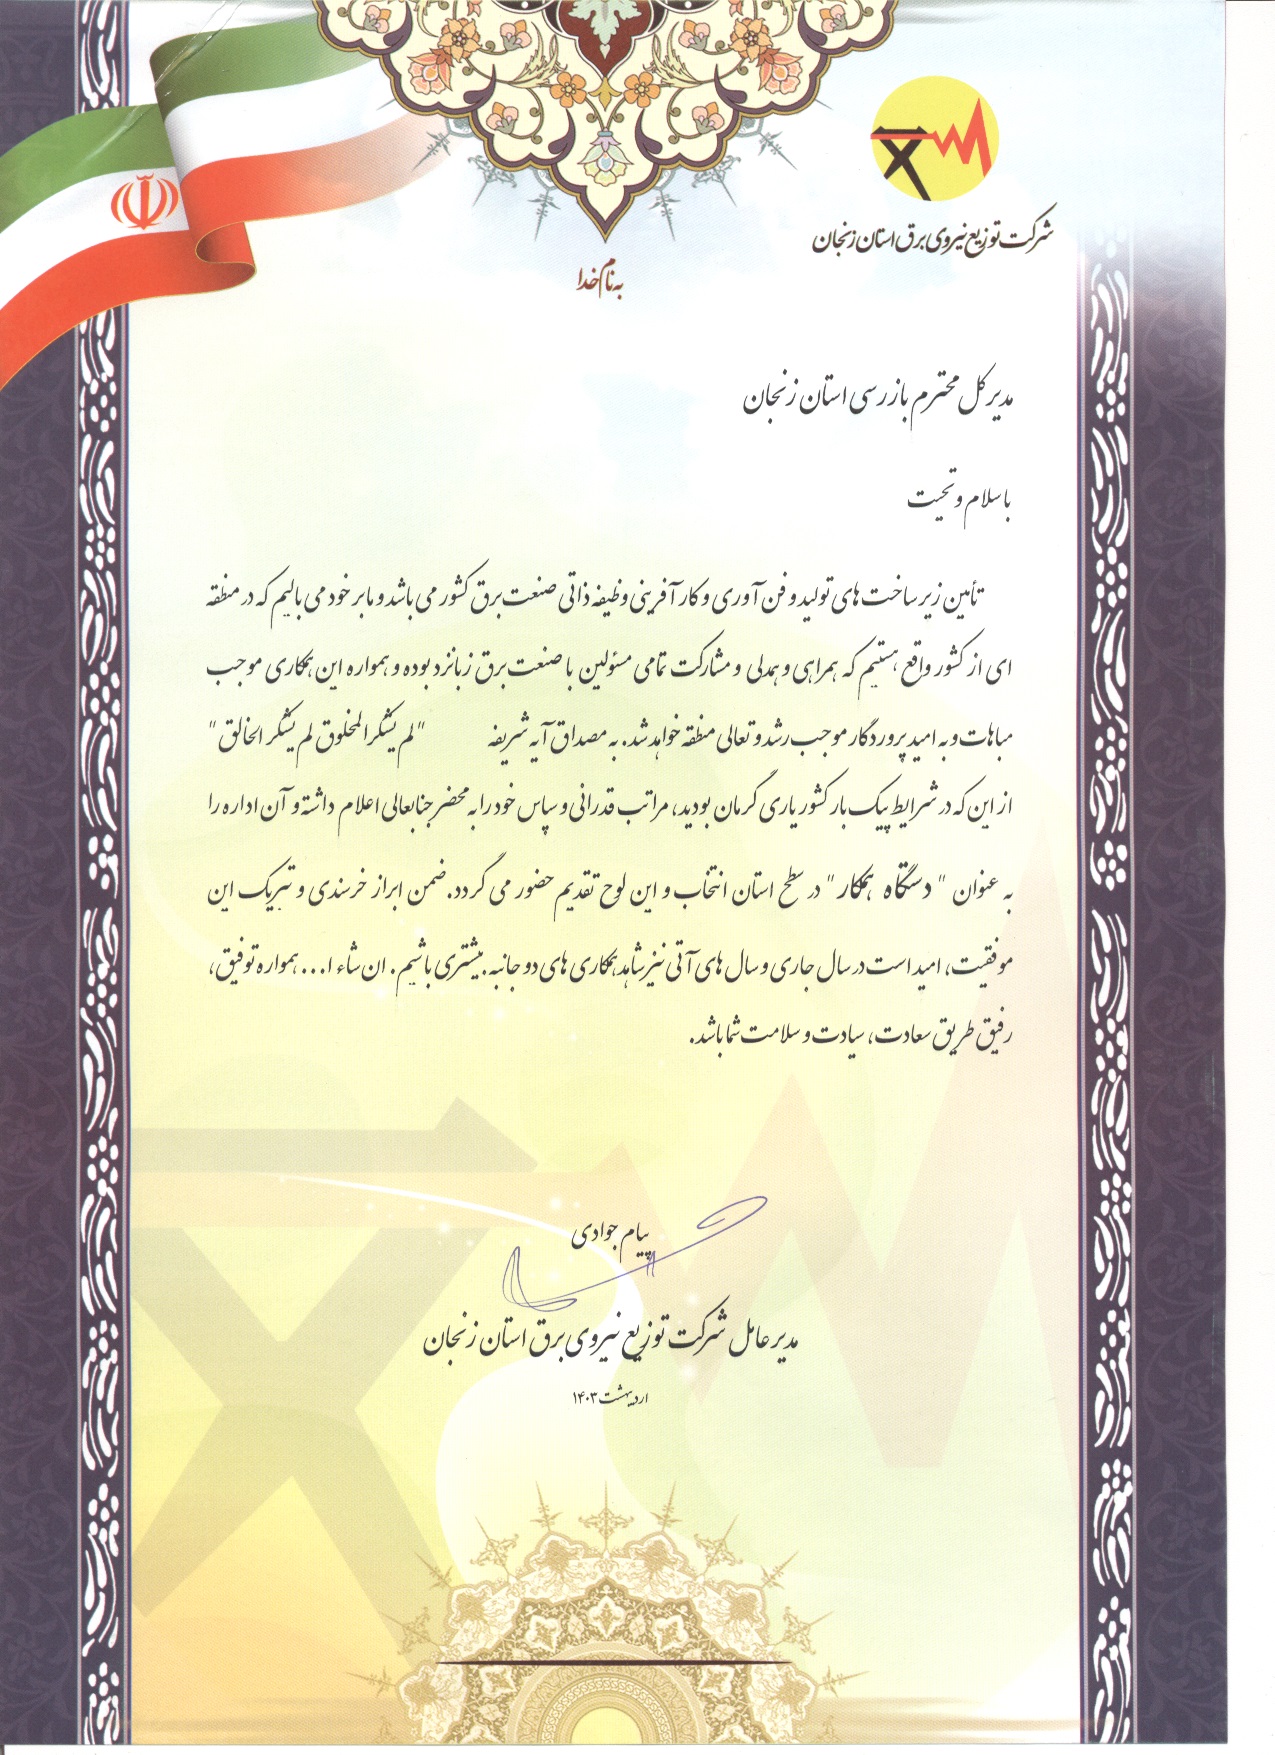 شرکت توزیع نیروی برق استان زنجان
به نام خدا
مدیرکل محترم بازرسی استان زنجان
با سلام و تحیت
تأمین زیر ساخت های تولید و فن آوری و کار آفرینی وظیفه ذاتی صنعت برق کشور می باشد و ما بر خود می بالیم که در منطقه
ای از کشور واقع هستیم که همراهی و همدلی و مشارکت تمامی مسئولین با صنعت برق زبانزد بوده و همواره این همکاری موجب
مباهات و به امید پروردگار موجب رشد و تعالی منطقه خواهد شد. به مصداق آیه شریفه "لم یشکر المخلوق لم یشکر الخالق"
از این که در شرایط پیک بار کشور یاری گرمان بودید، مراتب قدرانی و سپاس خود را به محضر جنابعالی اعلام داشته و آن اداره را
به عنوان "دستگاه همکار" در سطح استان انتخاب و این لوح تقدیم حضور می گردد. ضمن ابراز خرسندی و تبریک این
موفقیت، امید است در سال جاری و سال های آتی نیز شاهد همکاری های دو جانبه . بیشتری باشیم. ان شاء ا... همواره توفیق،
رفیق طریق سعادت، سیادت و سلامت شما باشد.
پیام جوادی
مدیر عامل شرکت توزیع نیروی برق استان زنجان
اردیبهشت ۱۴۰۳